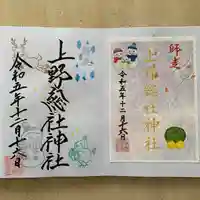 上野総社神社
令和五年十二月十六日
師走
上野総社神社
令和五年十二月十六日